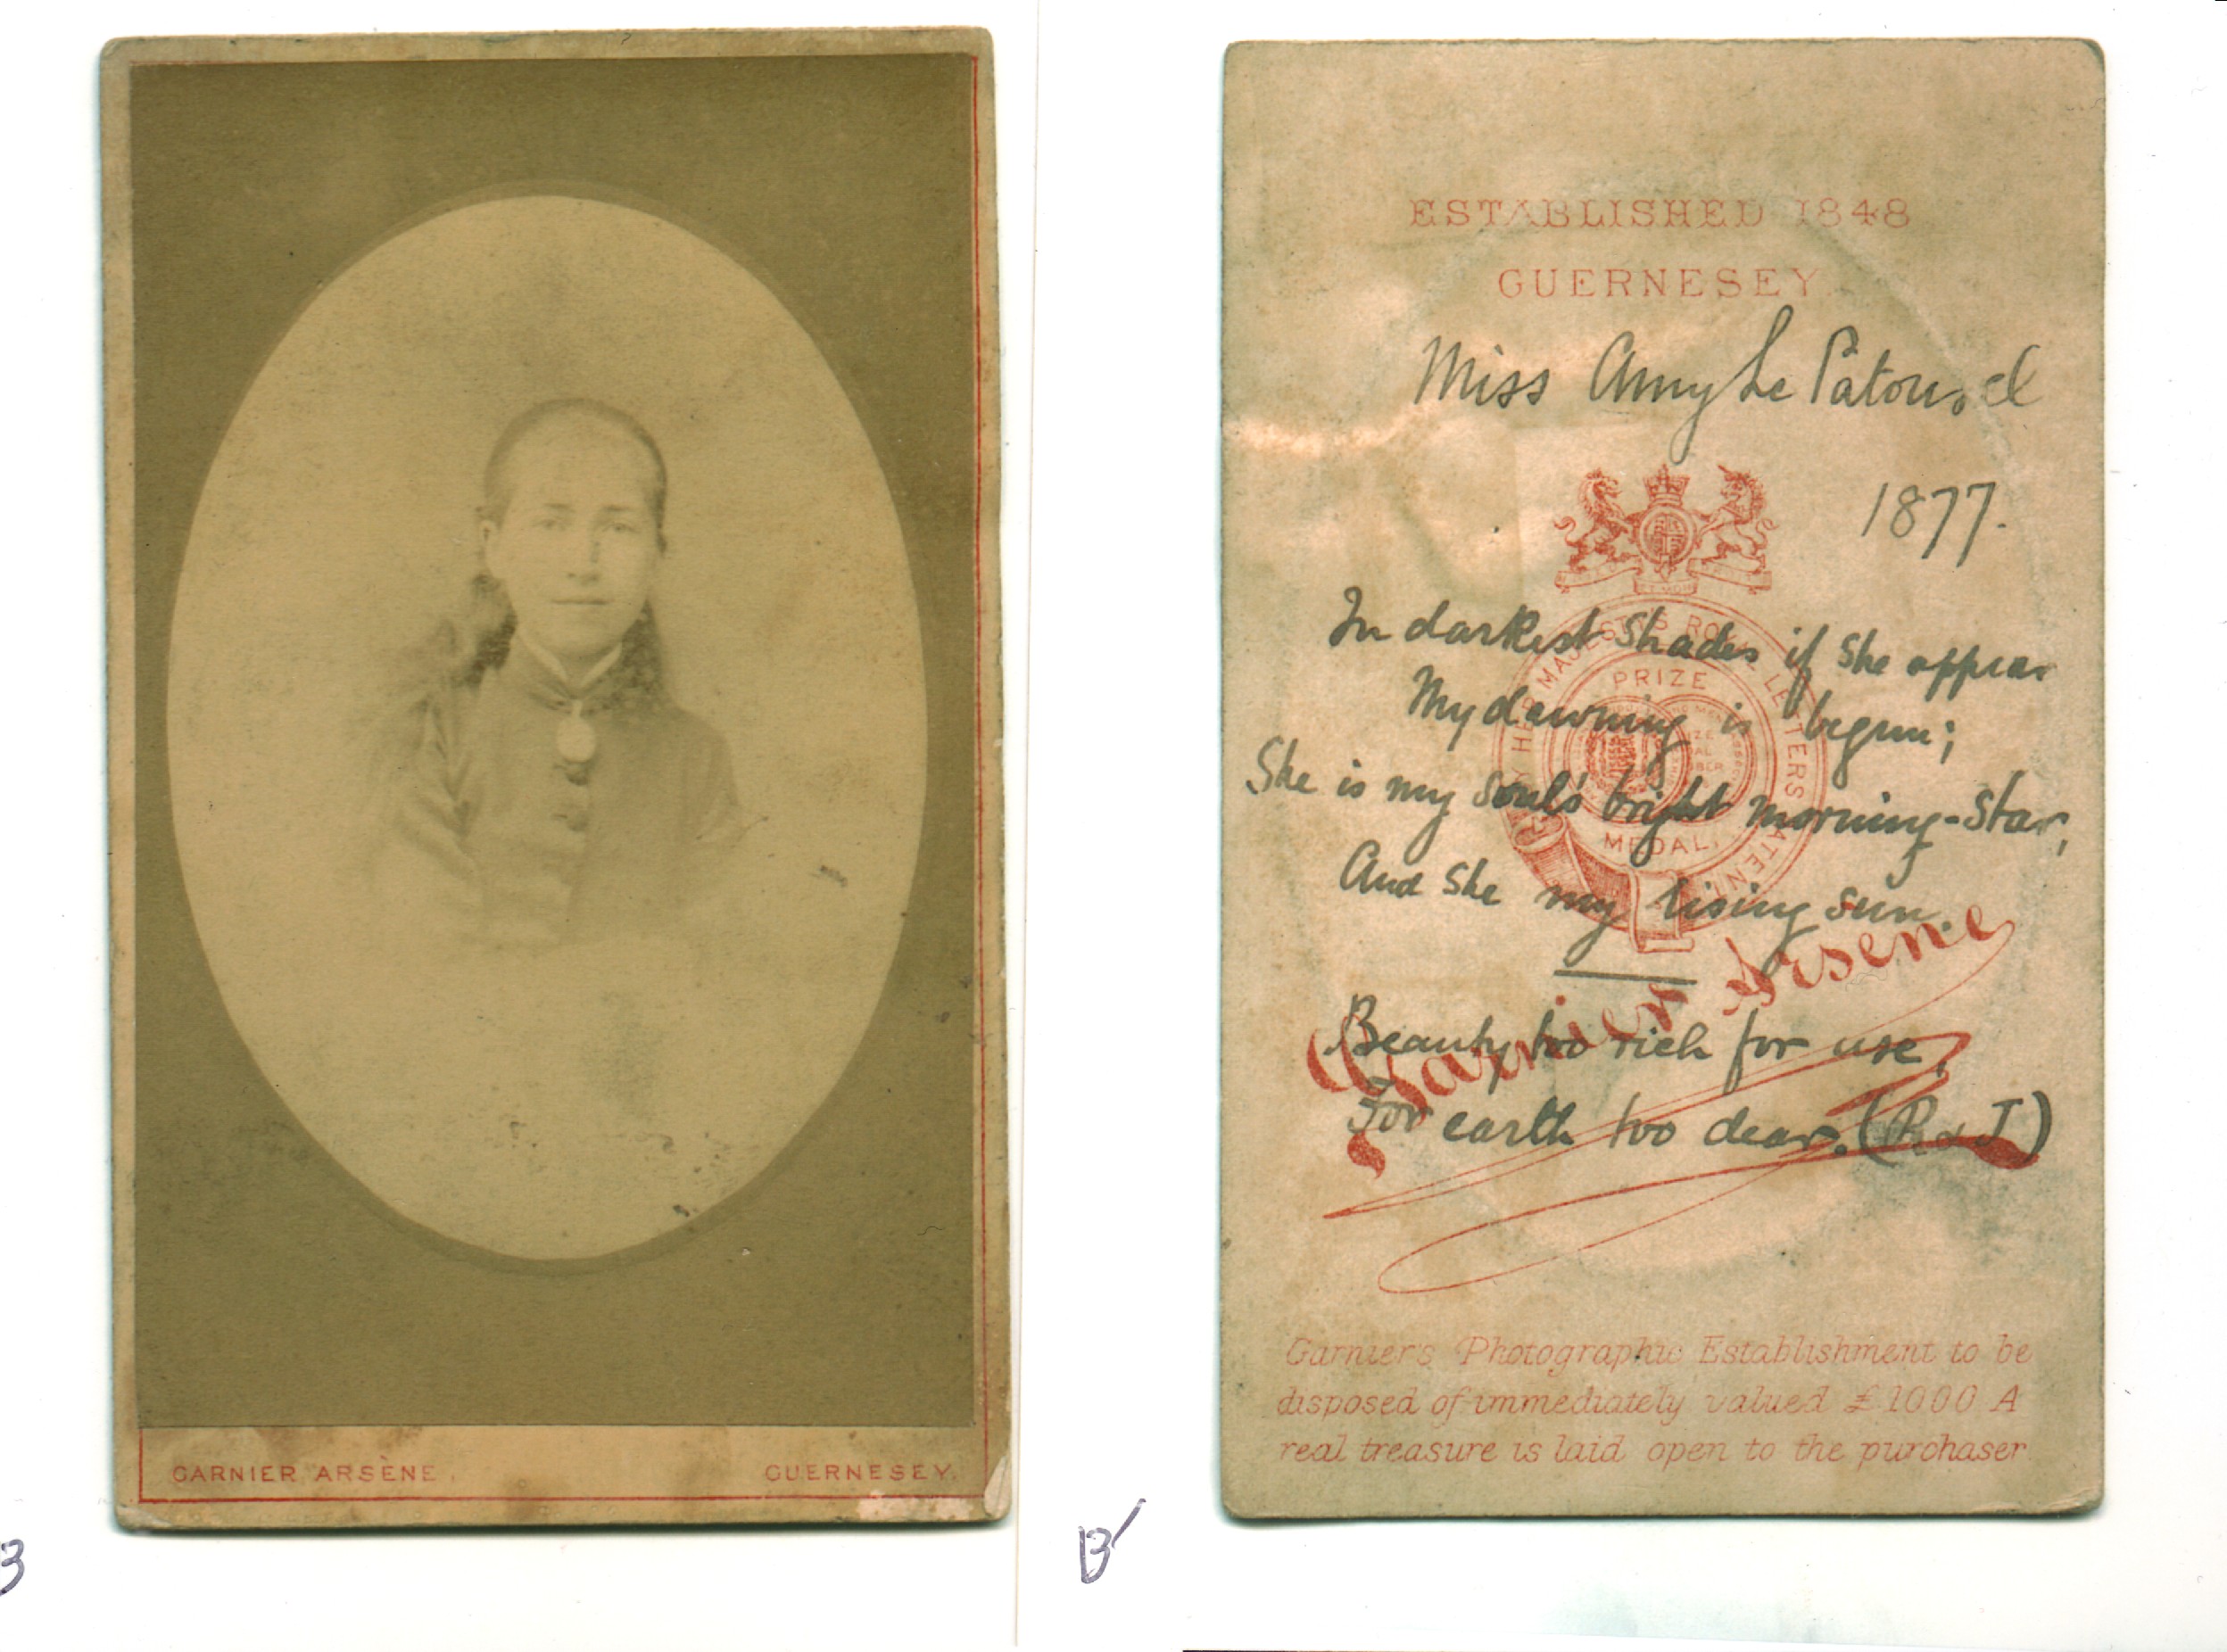 GARNIER ARSÈNE.
GUERNESEY.
B
ESTABLISHED 1848
GUERNESEY
Miss Amy Le Patourel
1877.
HER MAJESTY'S ROYAL LETTERS PATENT
PRIZE
MEDAL,
In darkest shades if she appear
My dawning is begun;
She is my soul's bright morning-star,
And she my rising sun.
Garnier Arsene
Beauty too rich for use,
For earth too dear. (R & J)
Garnier's Photographic Establishment to be
disposed of immediately valued £1000 A
real treasure is laid open to the purchaser
B'